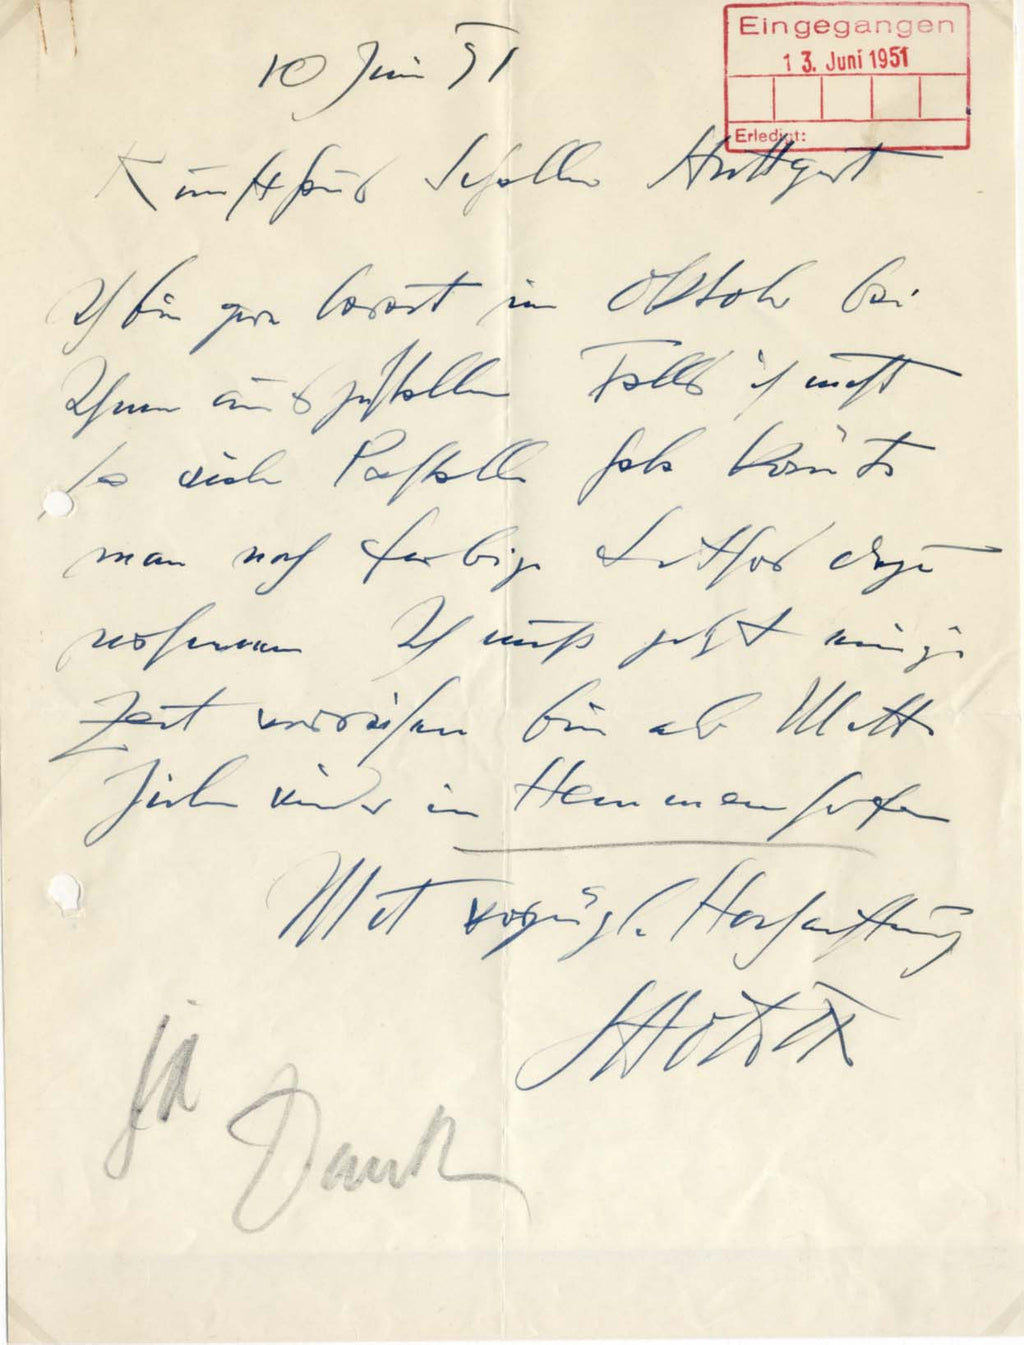 Eingegangen
13. Juni 1951
Erledigt:
10 Juni 51
Kunsthaus Schaller Stuttgart
Ich bin gern bereit im Oktob bei
Ihnen auszustellen Falls ich nicht
so viele Pastelle habe könnte
man noch farbige Lithos dazu
nehmen Ich muß jetzt einige
Zeit verreisen bin ab Mitte
Juli wieder in Hemmenhofen
Mit vorzügl. Hochachtung
Otto Dix
ja
Dank